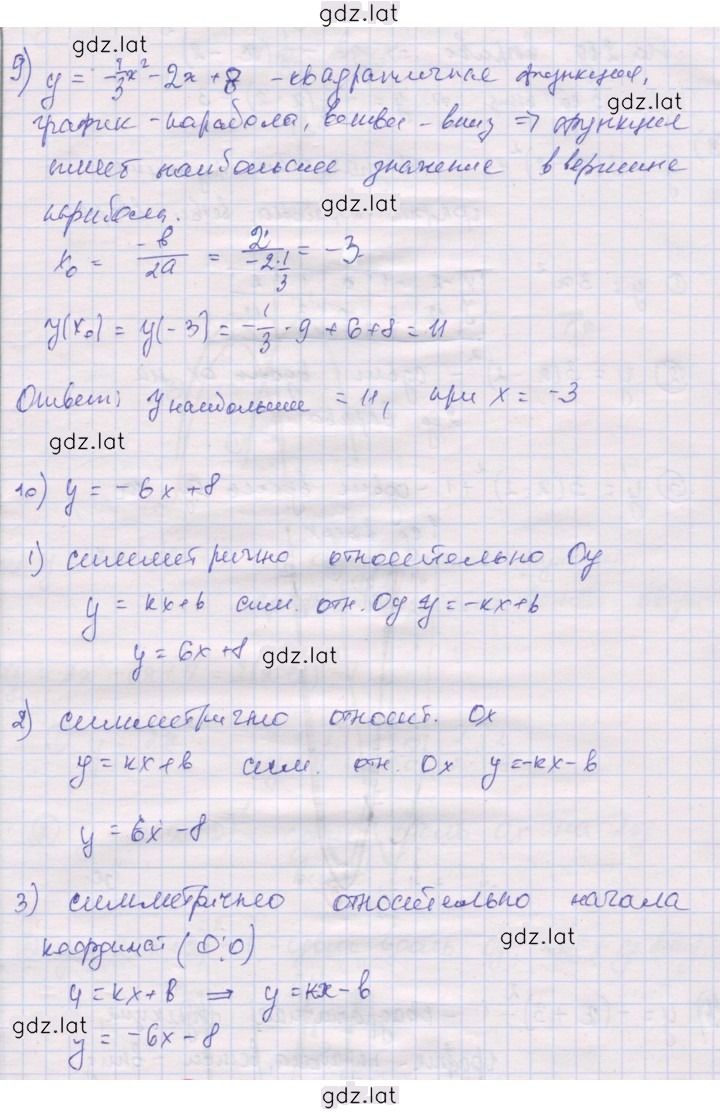 gdz.lat
gdz.lat
9) y = -1/3x² - 2x + 8 - квадратичная функция,
gdz.lat
график - парабола, ветви - вниз ⇒ функция
имеет наибольшее значение в вершине
gdz.lat
параболы.
x₀ = -b/2a = 2/(-2·1/3) = -3
y(x₀) = y(-3) = -1/3 · 9 + 6 + 8 = 11
Ответ: y наибольшее = 11, при x = -3
gdz.lat
10) y = -6x + 8
1) симметрично относительно Oy
y = kx + b сим. отн. Oy y = -kx + b
y = 6x + 8
gdz.lat
2) симметрично относит. Ox
y = kx + b сим. отн. Ox y = -kx - b
y = 6x - 8
3) симметрично относительно начала
gdz.lat
координат (0;0)
y = kx + b ⇒ y = kx - b
gdz.lat
y = -6x - 8
gdz.lat